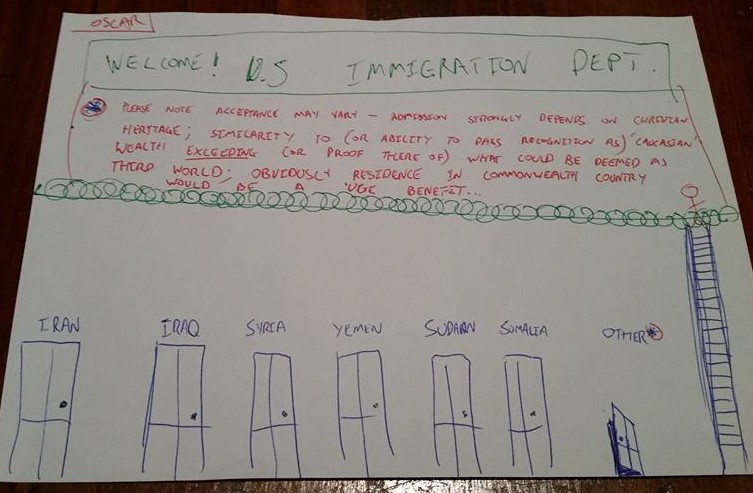 OSCAR
WELCOME! U.S IMMIGRATION DEPT.
* PLEASE NOTE ACCEPTANCE MAY VARY - ADMISSION STRONGLY DEPENDS ON CHRISTIAN
HERITAGE; SIMILARITY TO (OR ABILITY TO PASS RECOGNITION AS) 'CAUCASIAN'
WEALTH EXCEEDING (OR PROOF THERE OF) WHAT COULD BE DEEMED AS
THIRD WORLD; OBVIOUSLY RESIDENCE IN COMMONWEALTH COUNTRY
WOULD BE A 'UGE BENEFIT...
IRAN IRAQ SYRIA YEMEN SUDAN SOMALIA OTHER*